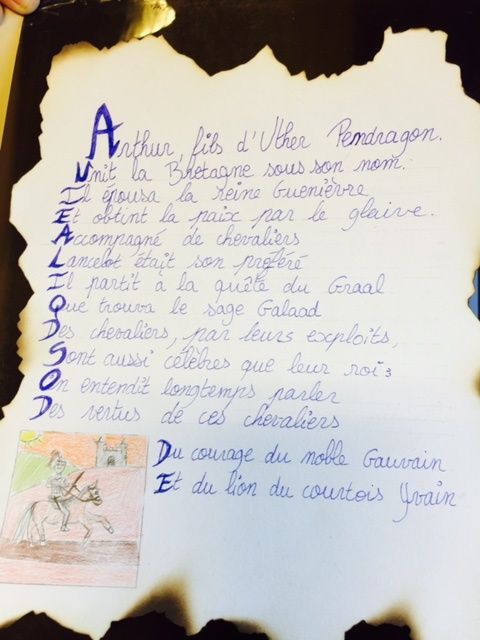 Arthur, fils d'Uther Pendragon.
Unit la Bretagne sous son nom.
Il épousa la reine Guenièvre
Et obtint la paix par le glaive.
Accompagné de chevaliers
Lancelot était son préféré
Il partit à la quête du Graal
Que trouva le sage Galaad
Des chevaliers, par leurs exploits,
Sont aussi célèbres que leur roi;
On entendit longtemps parler
Des vertus de ces chevaliers
Du courage du noble Gauvain
Et du lion du courtois Yvain